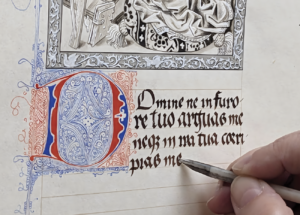 Domine ne in furo
re tuo arguas me
neqꝫ in ira tua corri
pias me